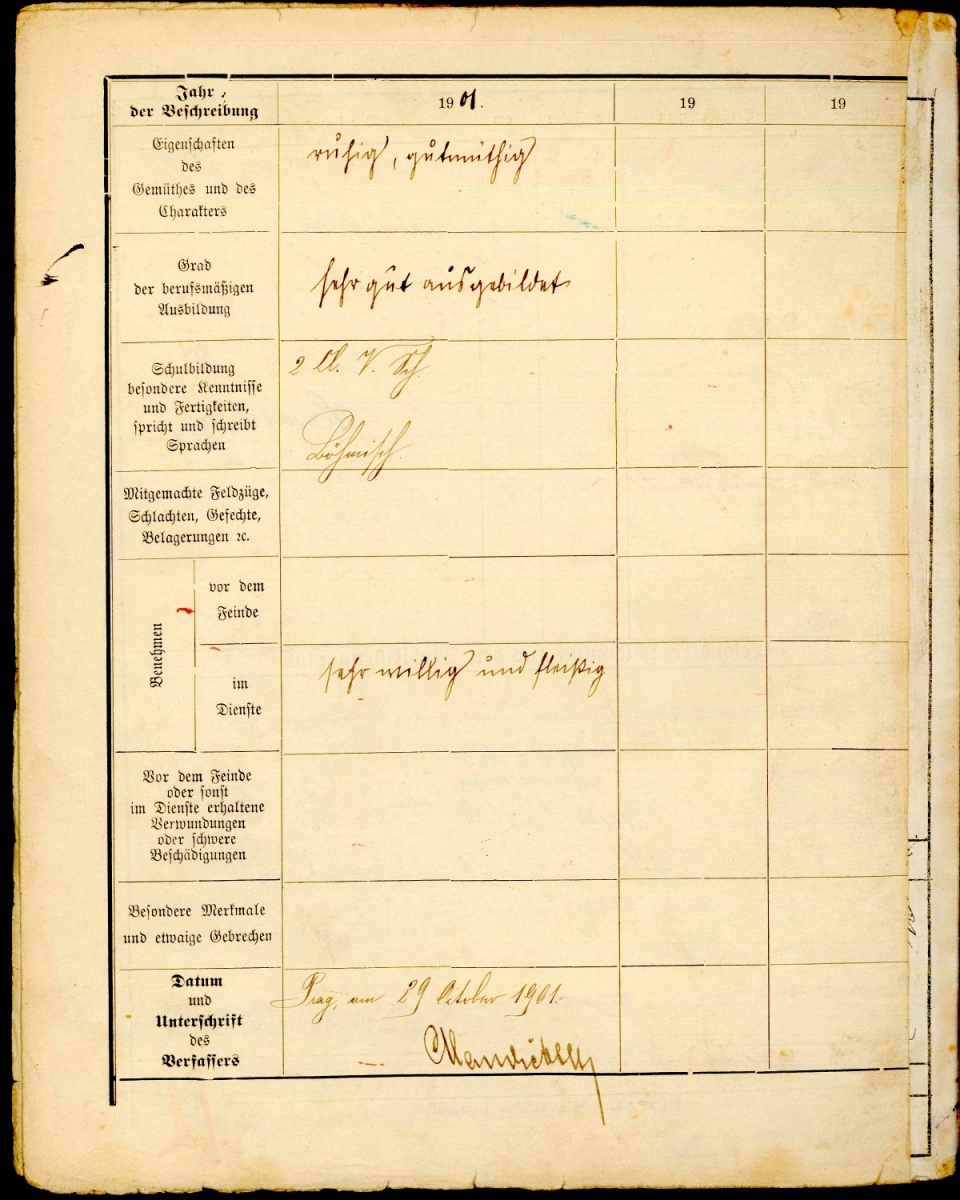 Jahr der Beschreibung
1901.
19
19
Eigenschaften
des
Gemüthes und des
Charakters
ruhig, gutmüthig
Grad
der berufsmäßigen
Ausbildung
sehr gut ausgebildet
Schulbildung
besondere Kenntnisse
und Fertigkeiten,
spricht und schreibt
Sprachen
2 Cl. V. Sch.
Böhmisch.
Mitgemachte Feldzüge,
Schlachten, Gefechte,
Belagerungen ꝛc.
Benehmen
vor dem
Feinde
im
Dienste
sehr willig und fleißig
Vor dem Feinde
oder sonst
im Dienste erhaltene
Verwundungen
oder schwere
Beschädigungen
Besondere Merkmale
und etwaige Gebrechen
Datum
und
Unterschrift
des
Verfassers
Prag, am 29 October 1901.